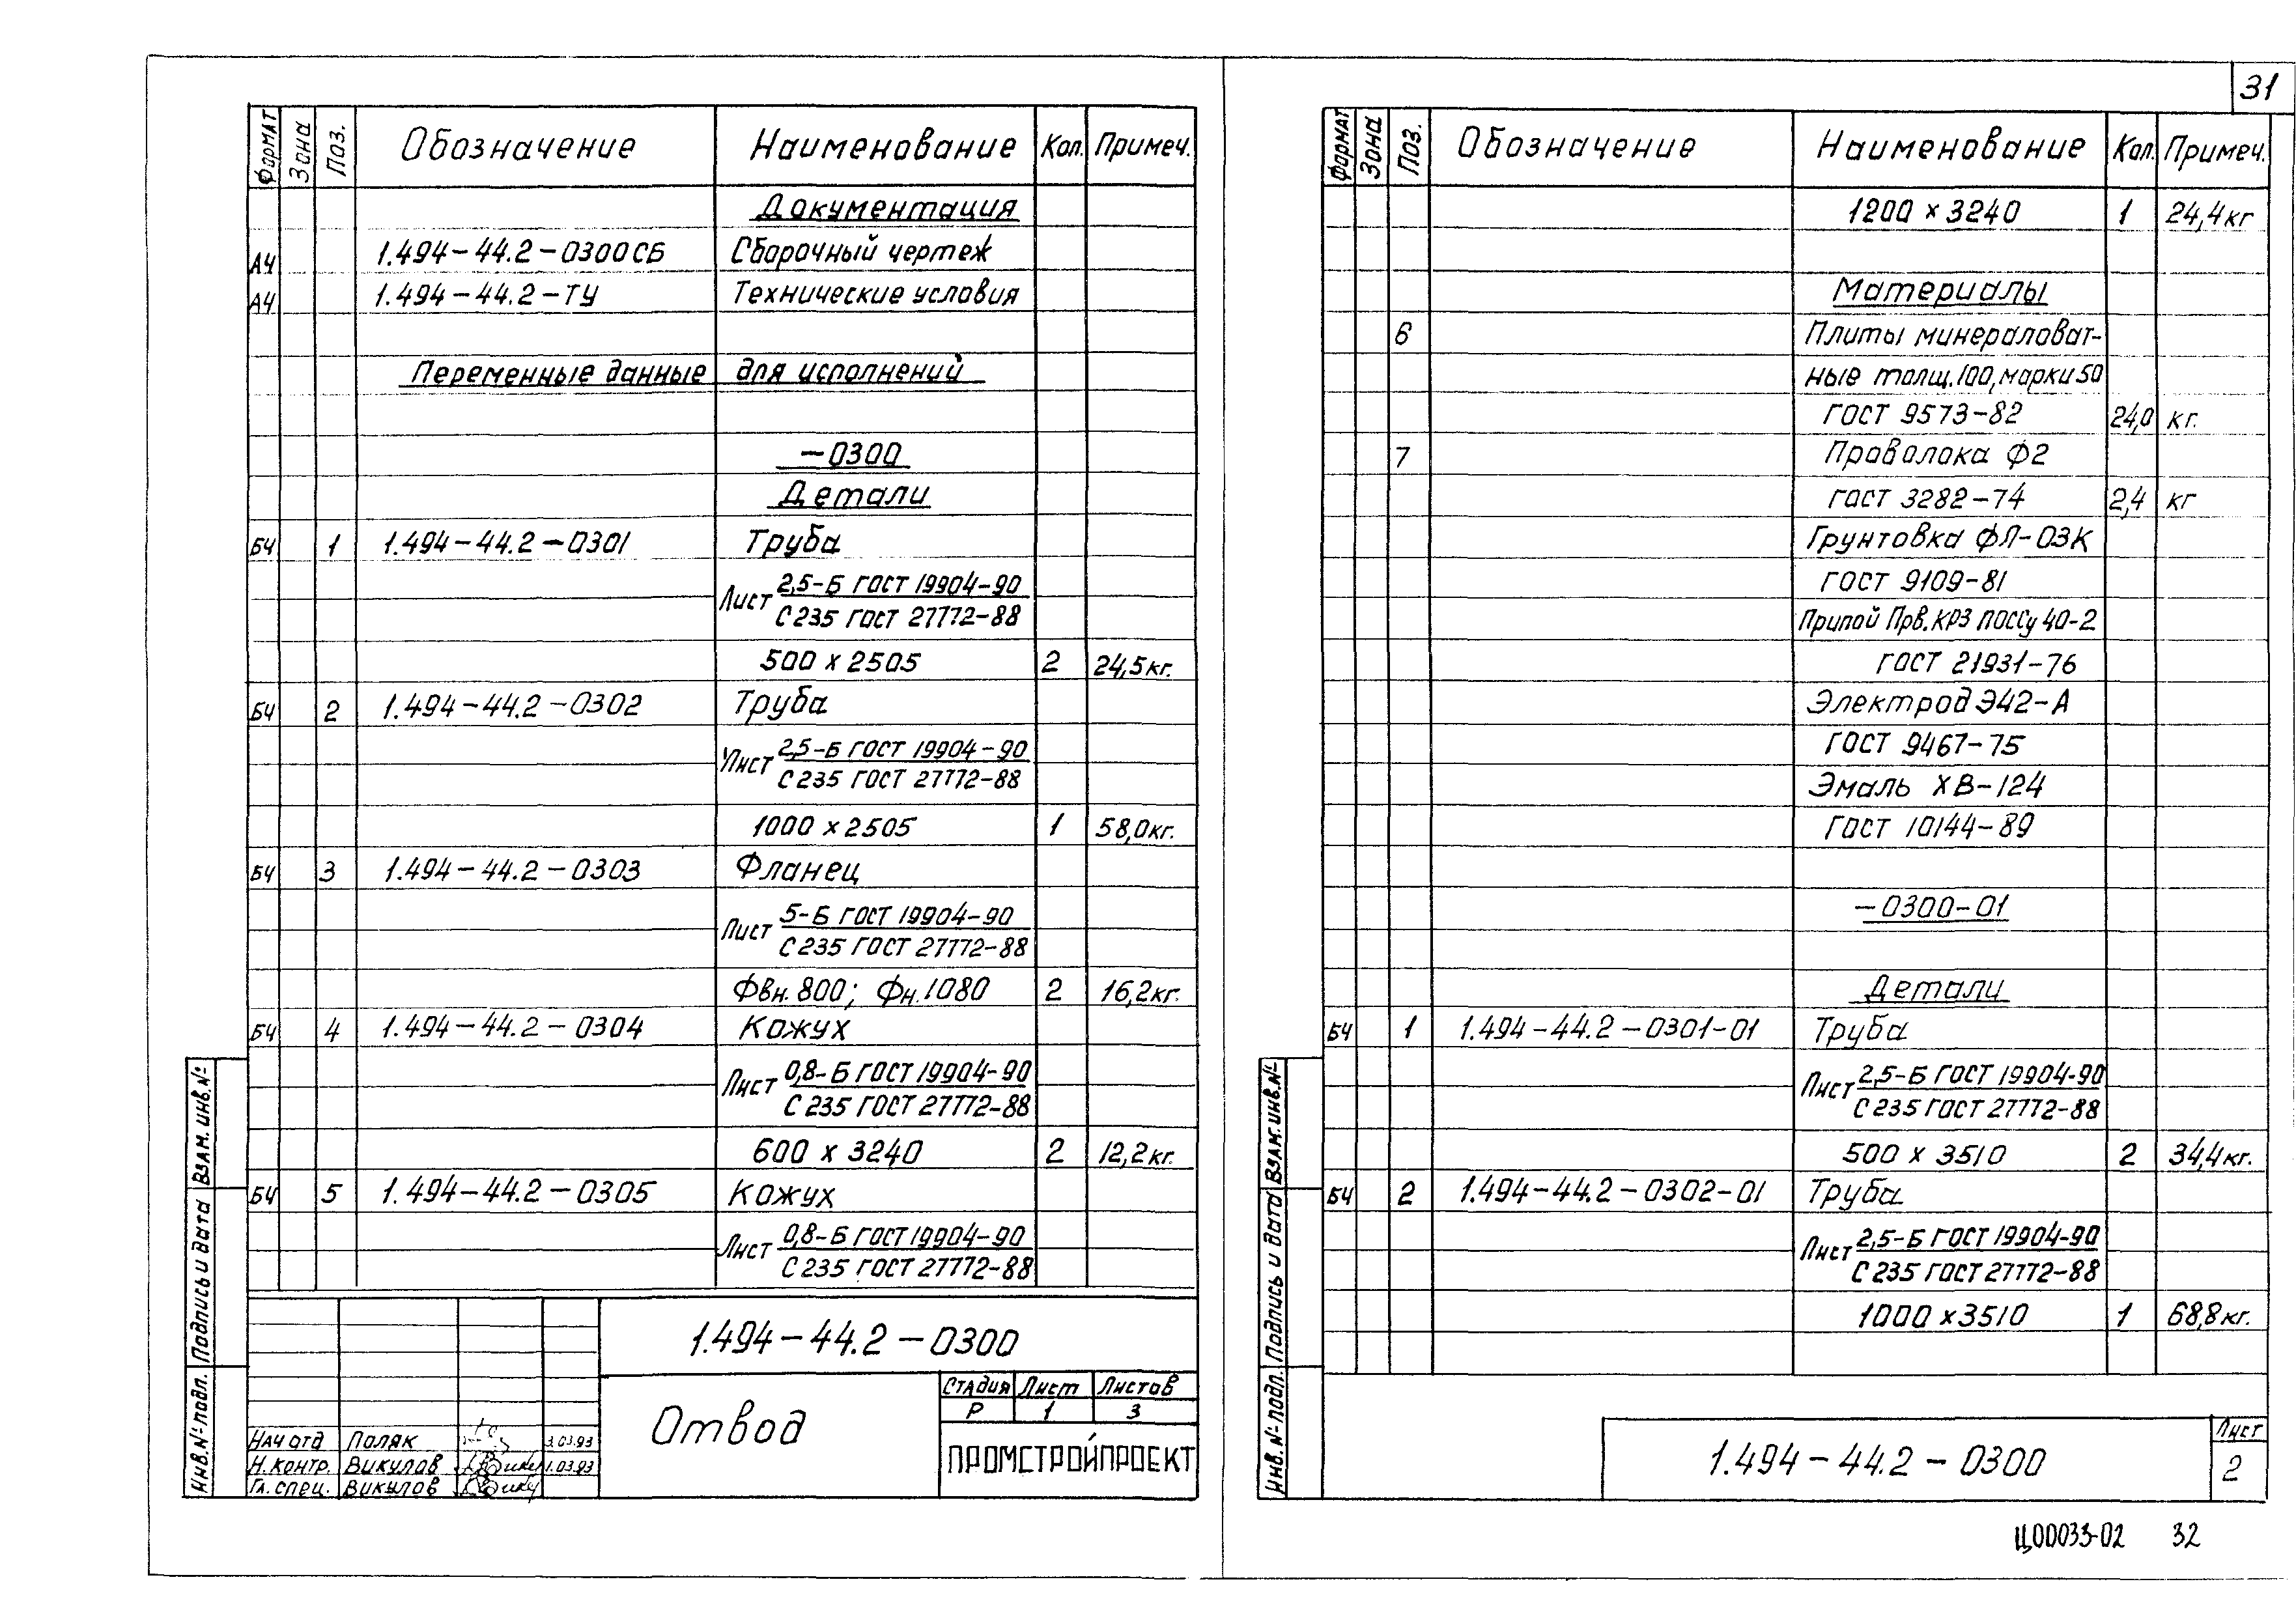 31
Формат Зона Поз. Обозначение Наименование Кол. Примеч.
Документация
А4 1.494-44.2-0300СБ Сборочный чертеж
А4 1.494-44.2-ТУ Технические условия
Переменные данные для исполнений
-0300
Детали
БЧ 1 1.494-44.2-0301 Труба
Лист 2,5-Б ГОСТ 19904-90
С235 ГОСТ 27772-88
500 x 2505 2 24,5кг.
БЧ 2 1.494-44.2-0302 Труба
Лист 2,5-Б ГОСТ 19904-90
С235 ГОСТ 27772-88
1000 x 2505 1 58,0кг.
БЧ 3 1.494-44.2-0303 Фланец
Лист 5-Б ГОСТ 19904-90
С235 ГОСТ 27772-88
Фвн.800; Фн.1080 2 16,2кг.
БЧ 4 1.494-44.2-0304 Кожух
Лист 0,8-Б ГОСТ 19904-90
С235 ГОСТ 27772-88
600 x 3240 2 12,2кг.
БЧ 5 1.494-44.2-0305 Кожух
Лист 0,8-Б ГОСТ 19904-90
С235 ГОСТ 27772-88
1.494-44.2-0300
Отвод
Стадия Лист Листов
Р 1 3
ПРОМСТРОЙПРОЕКТ
Нач отд Поляк 3.03.93
Н.контр. Викулов 1.03.93
Гл.спец. Викулов
Инв.№ подл. Подпись и дата Взам.инв.№
Формат Зона Поз. Обозначение Наименование Кол. Примеч.
1200 x 3240 1 24,4кг
Материалы
6 Плиты минераловат-
ные толщ.100, марки 50
ГОСТ 9573-82 24,0 кг.
7 Проволока Ф2
ГОСТ 3282-74 2,4 кг
Грунтовка ФЛ-03К
ГОСТ 9109-81
Припой Прв.КР3 ПОССу 40-2
ГОСТ 21931-76
Электрод Э42-А
ГОСТ 9467-75
Эмаль ХВ-124
ГОСТ 10144-89
-0300-01
Детали
БЧ 1 1.494-44.2-0301-01 Труба
Лист 2,5-Б ГОСТ 19904-90
С235 ГОСТ 27772-88
500 x 3510 2 34,4кг.
БЧ 2 1.494-44.2-0302-01 Труба
Лист 2,5-Б ГОСТ 19904-90
С235 ГОСТ 27772-88
1000 x 3510 1 68,8кг.
Инв.№ подл. Подпись и дата Взам.инв.№
1.494-44.2-0300
Лист
2
Ц00033-02 32